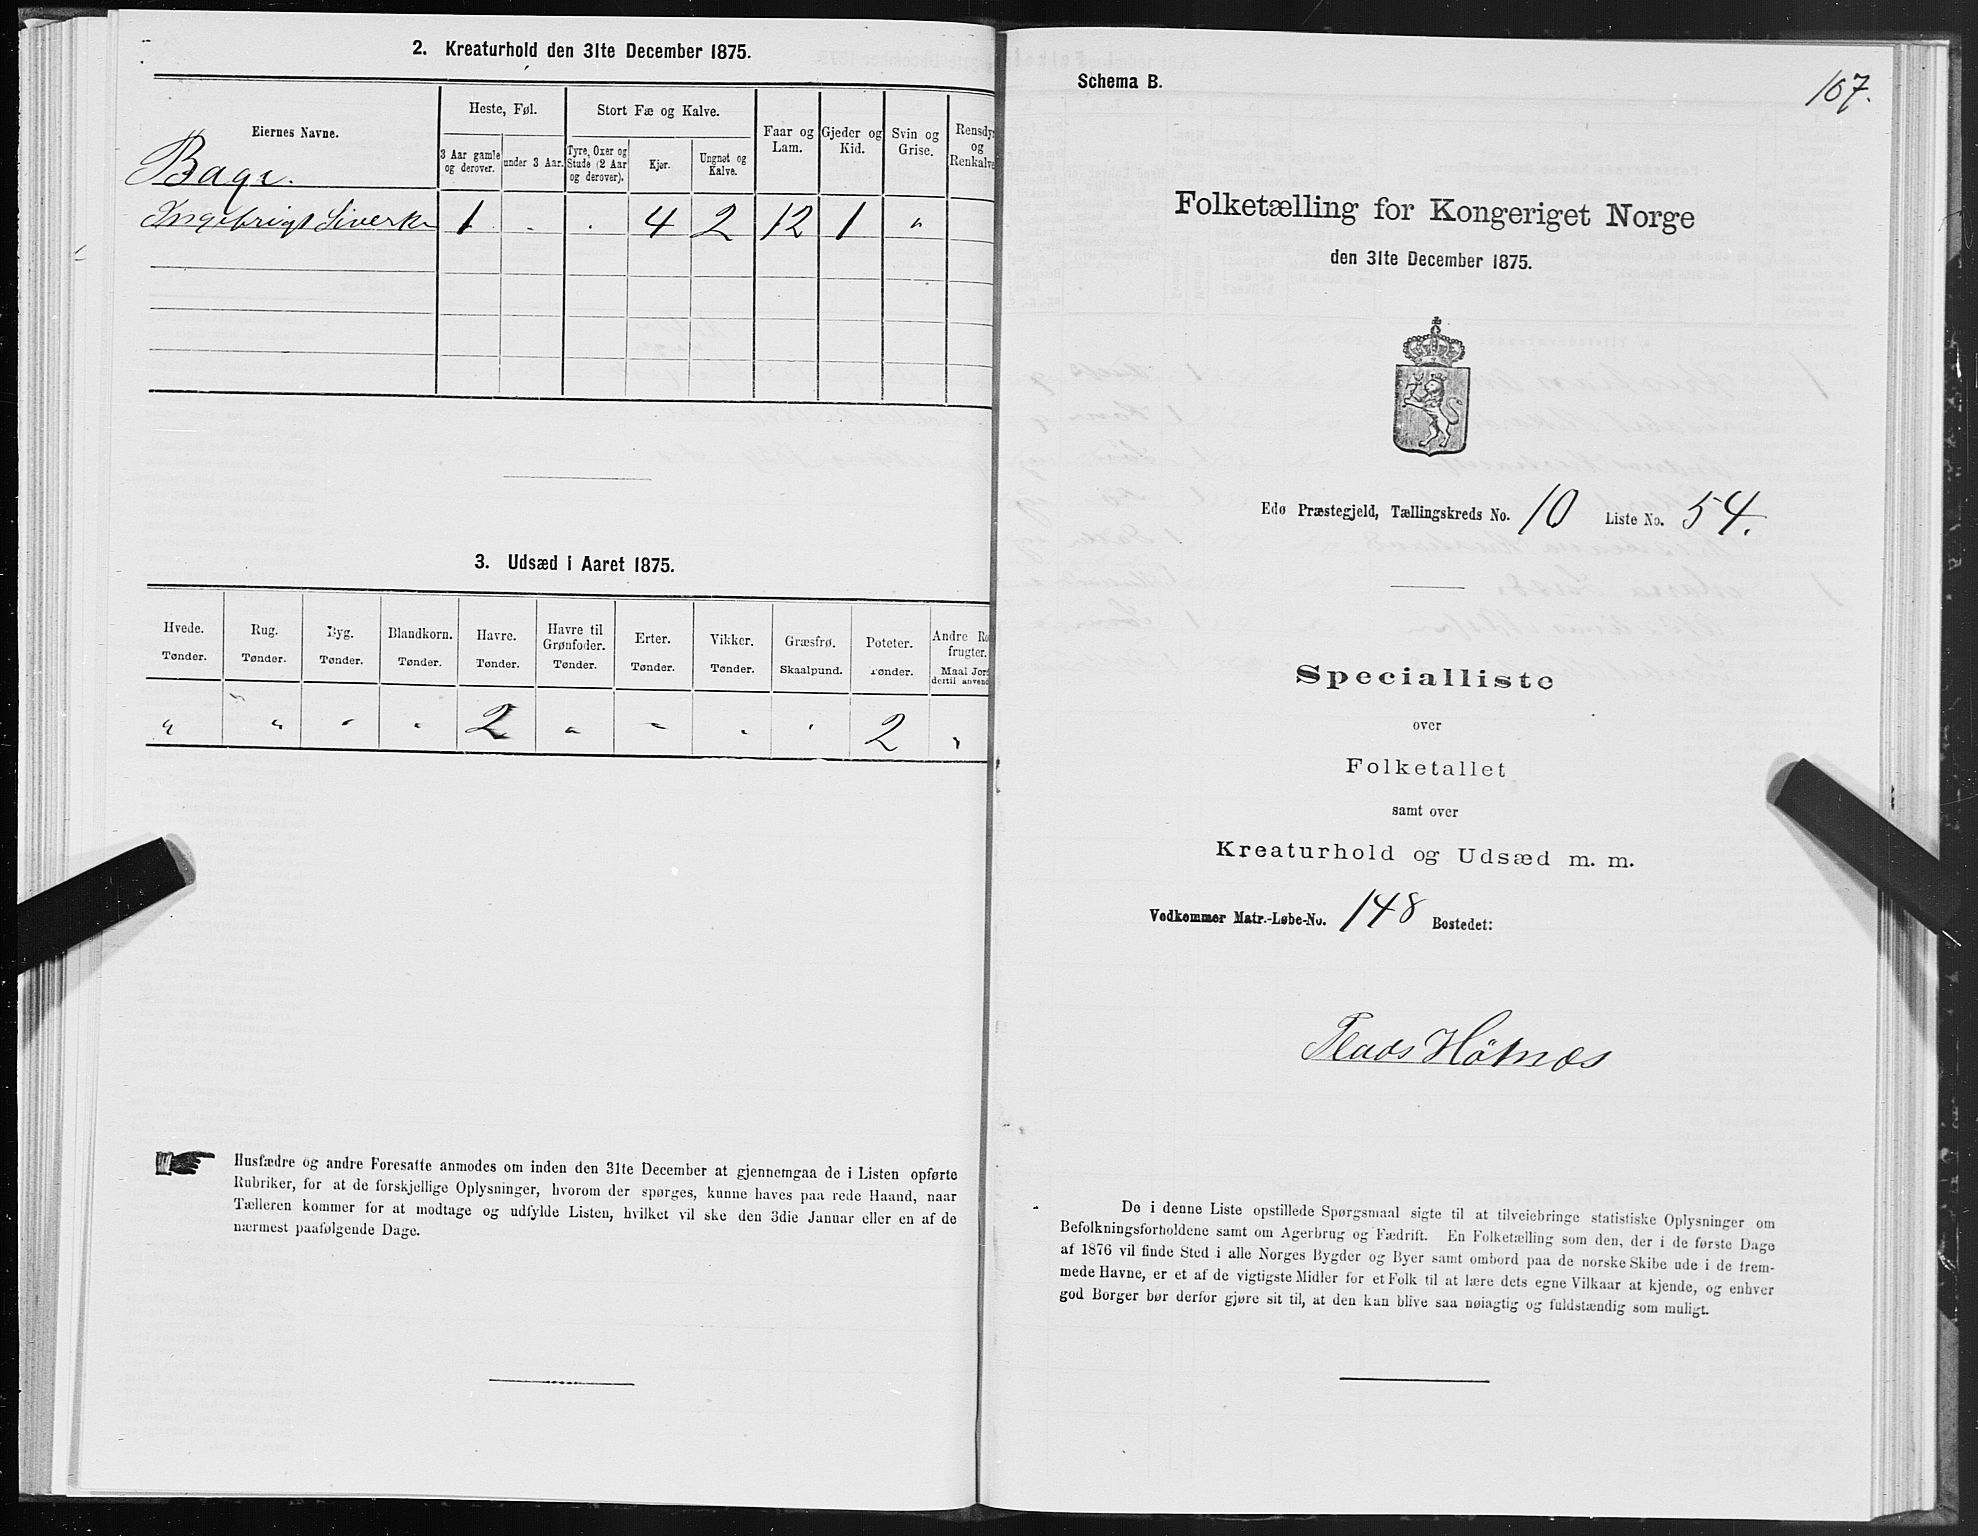 2. Kreaturhold den 31te December 1875.
Eiernes Navne.
Heste, Føl.
Stort Fæ og Kalve.
Faar og Lam.
Gjeder og Kid.
Svin og Grise.
Rensdyr og Renkalve
3 Aar gamle og derover.
under 3 Aar.
Tyre, Oxer og Stude (2 Aar og derover).
Kjør.
Ungnøt og Kalve.
Ingebrigt 1 . . 4 2 12 1 "
3. Udsæd i Aaret 1875.
Hvede. Rug. Byg. Blandkorn. Havre. Havre til Grønfoder. Erter. Vikker. Græsfrø. Poteter. Andre Ro frugter.
Tønder. Tønder. Tønder. Tønder. Tønder. Tønder. Tønder. Tønder. Skaalpund. Tønder. Maal Jord dertil anvend
" " " " 2 " " " " 2 "
Husfædre og andre Foresatte anmodes om inden den 31te December at gjennemgaa de i Listen opførte
Rubriker, for at de forskjellige Oplysninger, hvorom der spørges, kunne haves paa rede Haand, naar
Tælleren kommer for at modtage og udfylde Listen, hvilket vil ske den 3die Januar eller en af de
nærmest paafølgende Dage.
Schema B.
167.
Folketælling for Kongeriget Norge
den 31te December 1875.
Edø Præstegjeld, Tællingskreds No. 10 Liste No. 54.
Specialliste
over
Folketallet
samt over
Kreaturhold og Udsæd m. m.
Vedkommer Matr.-Løbe-No. 148 Bostedet:
De i denne Liste opstillede Spørgsmaal sigte til at tilveiebringe statistiske Oplysninger om
Befolkningsforholdene samt om Agerbrug og Fædrift. En Folketælling som den, der i de første Dage
af 1876 vil finde Sted i alle Norges Bygder og Byer samt ombord paa de norske Skibe ude i de frem-
mede Havne, er et af de vigtigste Midler for et Folk til at lære dets egne Vilkaar at kjende, og enhver
god Borger bør derfor gjøre sit til, at den kan blive saa nøiagtig og fuldstændig som muligt.